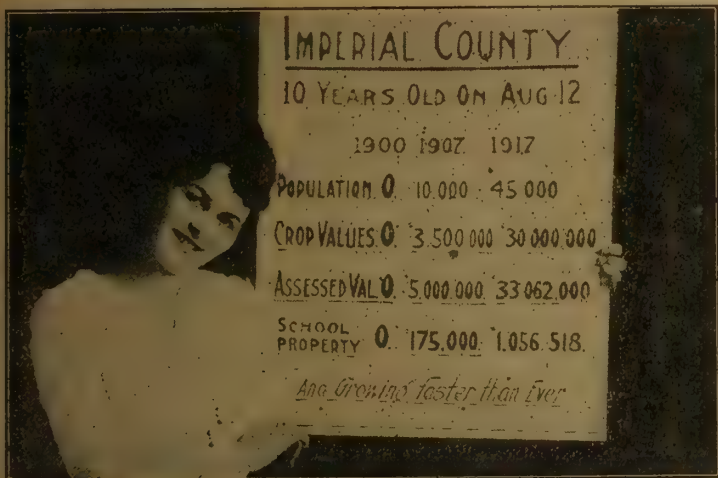 IMPERIAL COUNTY
10 YEARS OLD ON AUG 12
1900 1907 1917
POPULATION 0 10.000 45 000
CROP VALUES 0 3.500 000 30 000 000
ASSESSED VAL 0 5.000.000 33 062.000
SCHOOL
PROPERTY 0 175.000 1.056 518.
And Growing faster than Ever